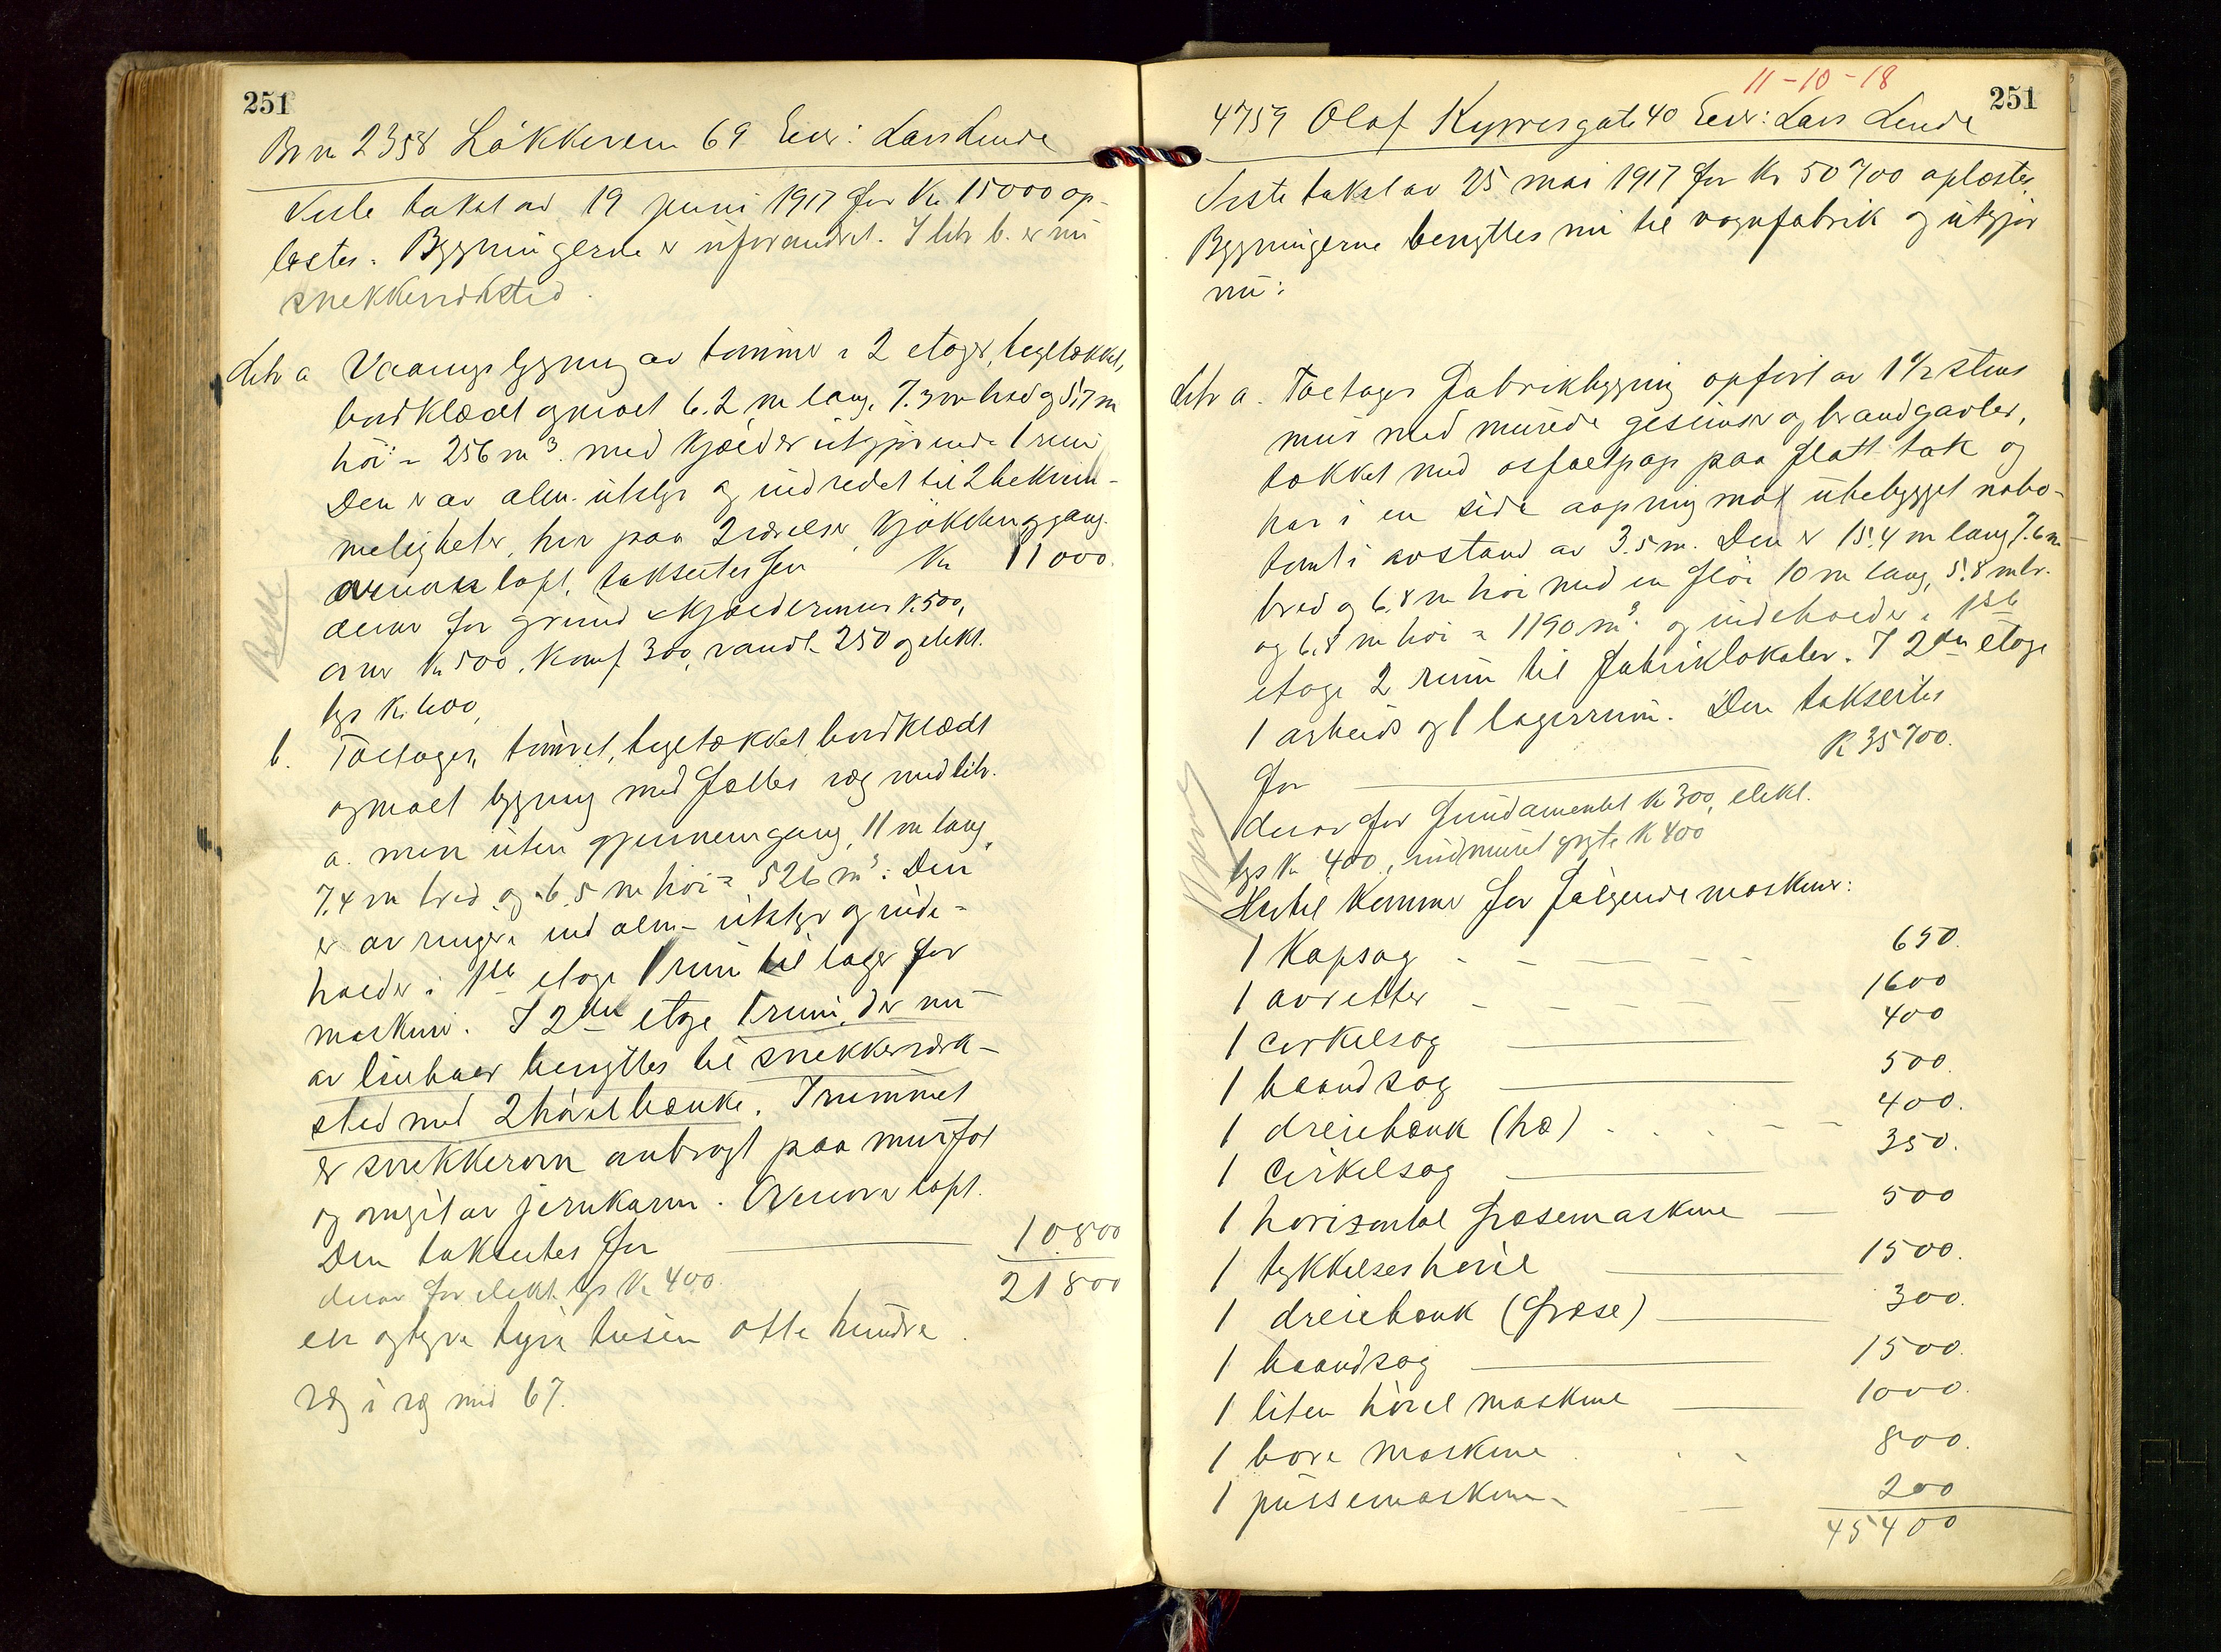 251
Br nr 2358 Løkkeven 69 Eier: Lars Lende
Siste takst av 19 juni 1917 for Kr 15000 op-
lestes. Bygningerne er uforandret. I litr b. er nu
snekkerverksted.
Litr a Vaaningsbygning av tømmer i 2 etager, tegltækket,
bordklædt og malt 6.2 m lang, 7.3 m bred og 5.7 m
høi = 256 m³. med kjælder utgjørende 1 rum
Den er av alm. utstyr og indredet til 2 bekvem-
meligheter, hver paa 2 værelser, kjøkken og gang.
Ovenover loft, taksertes for Kr 11000.
derav for grund & kjældermur K. 500,
Kr 500, Komf. 300, vandl. 250 og elekt.
lys Kr. 600,
b. Toetages, tømret, tegltækket bordklædt
og malt bygning med fælles væg med litr.
a. men uten gjennemgang, 11 m lang,
7.4 m bred og 6.5 m høi = 526 m³. Den
er av ringere end alm- utstyr og inde-
holder i 1ste etage 1 rum til lager for
maskiner. I 2den etage 1 rum, der nu
av benyttes til snekkerverk-
sted med 2 høvelbænke. I rummet
er snekkerovn anbragt paa murfot
og omgit av jernkarm. Ovenover loft.
Den taksertes for 10.800
derav for elekt. lys Kr 400. 21800
en og tyve tusen otte hundre.
Væg i væg med 67.
11-10-18
251
4759 Olaf Kyrresgate 40 Eier: Lars Lende
Siste takst av 25 mai 1917 for Kr 50700 oplæstes.
Bygningerne benyttes nu til vognfabrik og utgjør
nu:
Litr a. Toetages fabrikbygning opført av 1½ stens
mur med murede gesimser og brandgavler,
tækket med asfaltpap paa flatt tak og
har i en side aapning mot ubebygget nabo-
tomt i avstand av 3.5 m. Den er 15.4 m lang 7.6 m
bred og 6.8 m høi med en fløi 10 m lang, 5.8 m br.
og 6.8 m høi = 1190 m³. og indeholder i 1ste
etage 2 rum til fabriklokaler. I 2den etage
1 arbeids og 1 lagerrum. Den taksertes
for K 35700.
derav for fundamentet Kr 300, elekt.
lys Kr 400, indmuret gryte K 400
Hertil kommer for følgende maskiner:
1 Kapsag 650.
1 avretter 1600
1 cirkelsag 400
1 baandsag 500.
1 dreiebænk (træ) 400.
1 Cirkelsag 350.
1 horizontal fræsemaskine 500
1 tykkelseshøvel 1500.
1 dreiebænk (fræse) 300.
1 baandsag 1500.
1 liten høvelmaskine 1000.
1 boremaskine 800.
1 pussemaskine 200
45400